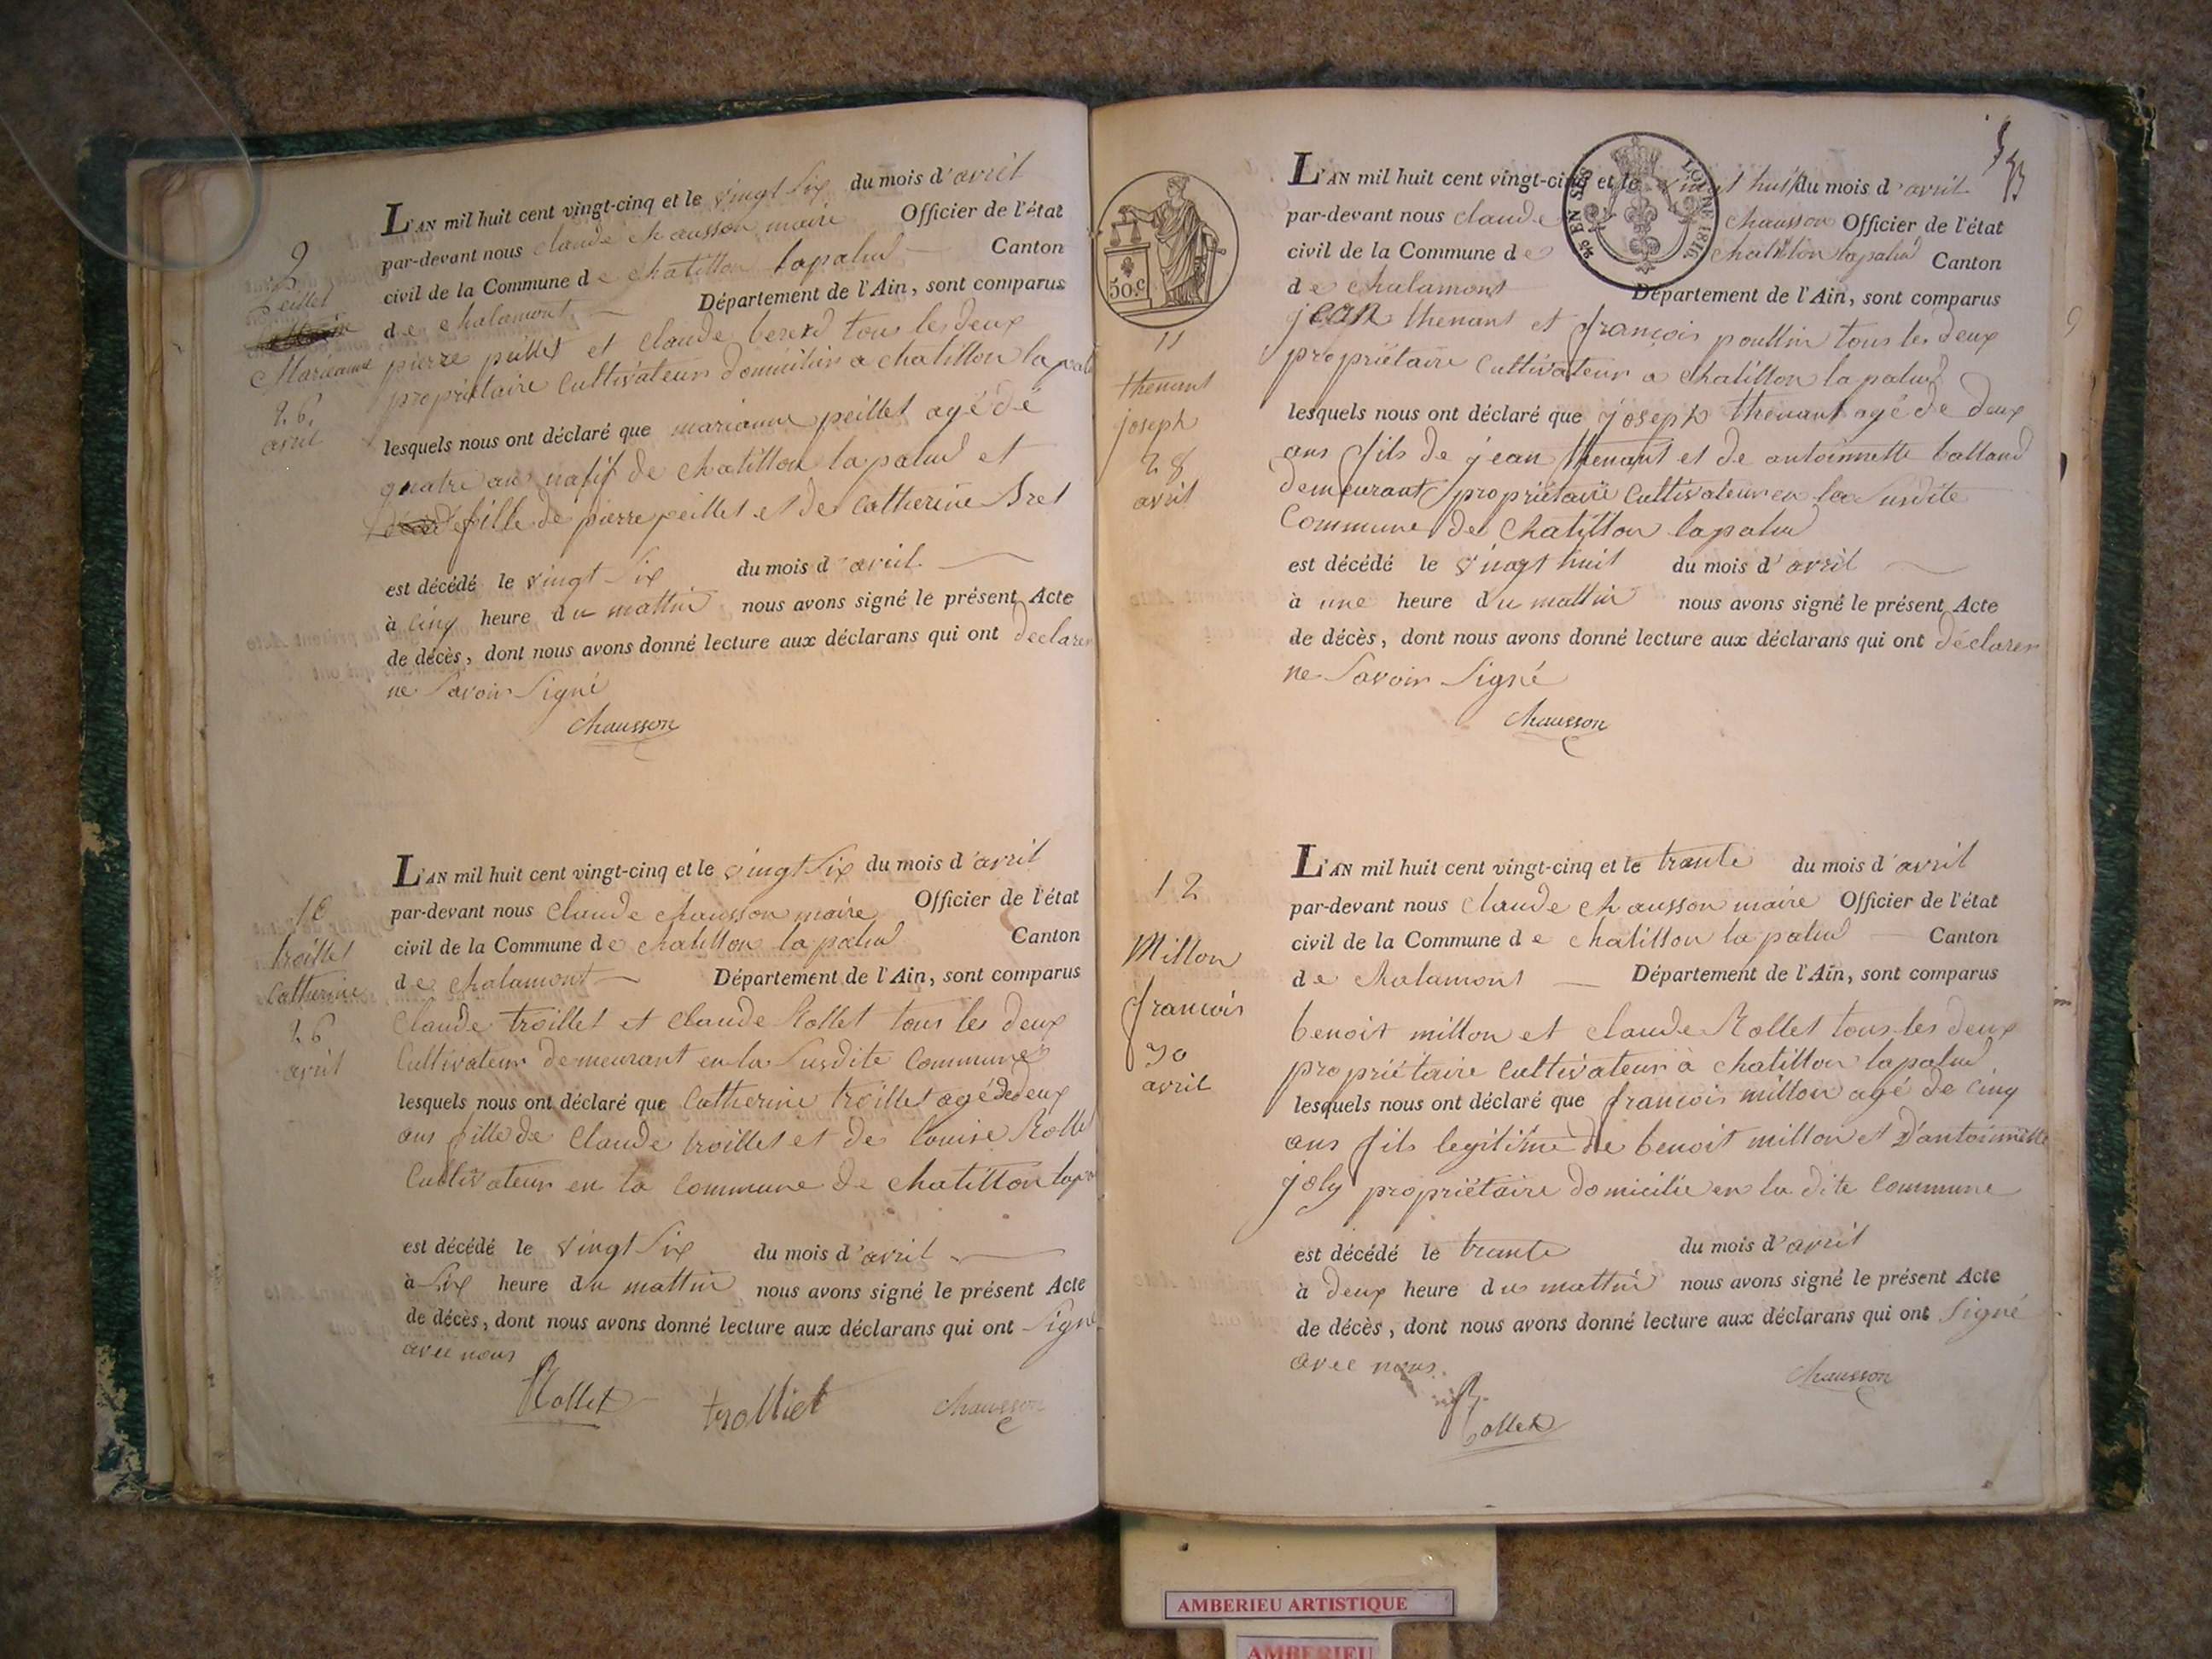 9
peillet
Marianne
26
avril
L'AN mil huit cent vingt-cinq et le vingt six du mois d'avril
par-devant nous claude chausson maire Officier de l'état
civil de la Commune de chatillon lapalud Canton
de chalamont Département de l'Ain, sont comparus
pierre peillet et claude bererd tous les deux
propriétaire cultivateur domicilier a chatillon la palu
lesquels nous ont déclaré que marianne peillet agé de
quatre ans natif de chatillon la palud et
fille de pierre peillet et de catherine Bret
est décédé le vingt six du mois d'avril
à cinq heure du mattin nous avons signé le présent Acte
de décès, dont nous avons donné lecture aux déclarans qui ont declarer
ne savoir signé
chausson
10
troillet
catherine
26
avril
L'AN mil huit cent vingt-cinq et le vingt six du mois d'avril
par-devant nous claude chausson maire Officier de l'état
civil de la Commune de chatillon la palud Canton
de chalamont Département de l'Ain, sont comparus
claude troillet et claude Rollet tous les deux
cultivateur demeurant en la susdite commune
lesquels nous ont déclaré que catherine troillet agé de deux
ans fille de claude troillet et de louise Rollet
cultivateur en la commune de chatillon lapa
est décédé le vingt six du mois d'avril
à six heure du mattin nous avons signé le présent Acte
de décès, dont nous avons donné lecture aux déclarans qui ont signé
avec nous
Rollet trolliet chausson
50.c
11
thenant
joseph
28
avril
L'AN mil huit cent vingt-cinq et le vingt huit du mois d'avril
par-devant nous claude chausson Officier de l'état
civil de la Commune de chatillon lapalud Canton
de chalamont Département de l'Ain, sont comparus
jean thenant et françois poullin tous les deux
propriétaire cultivateur a chatillon la palud
lesquels nous ont déclaré que joseph thenant agé de deux
ans fils de jean thenant et de antoinnette balland
demeurant propriétaire cultivateur en la susdite
commune de chatillon lapalud
est décédé le vingt huit du mois d'avril
à une heure du mattin nous avons signé le présent Acte
de décès, dont nous avons donné lecture aux déclarans qui ont déclarer
ne savoir signé
chausson
12
Millon
françois
30
avril
L'AN mil huit cent vingt-cinq et le trante du mois d'avril
par-devant nous claude chausson maire Officier de l'état
civil de la Commune de chatillon la palud Canton
de chalamont Département de l'Ain, sont comparus
benoit millon et claude Rollet tous les deux
propriétaire cultivateur à chatillon lapalud
lesquels nous ont déclaré que françois millon agé de cinq
ans fils legitime de benoit millon et d'antoinnette
joly propriétaire domicilie en la dite commune
est décédé le trante du mois d'avril
à deux heure du mattin nous avons signé le présent Acte
de décès, dont nous avons donné lecture aux déclarans qui ont signé
avec nous
chausson
Rollet
AMBERIEU ARTISTIQUE
AMBERIEU